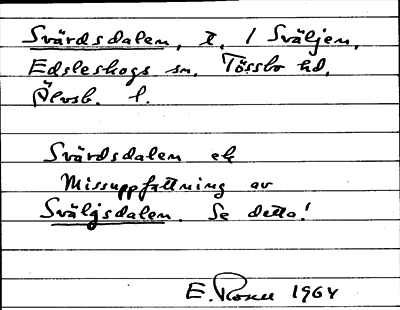 Svärdsdalen, t. / Sväljen,
Edsleskogs sn. Tössbo hd,
Älvsb. l.
Svärdsdalen ek
Missuppfattning av
Sväljsdalen. Se detta!
E. Rosell 1964